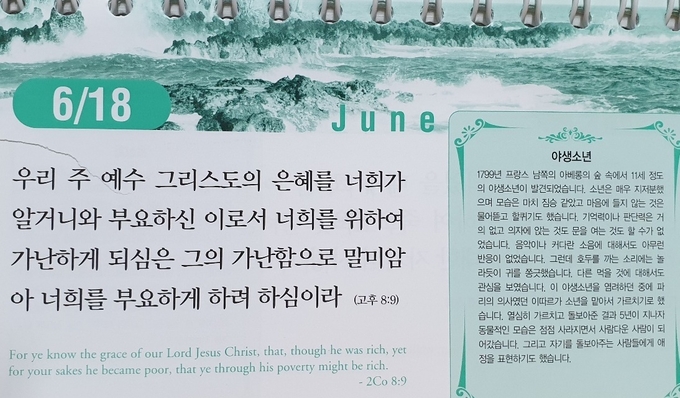 6/18
June
우리 주 예수 그리스도의 은혜를 너희가
알거니와 부요하신 이로서 너희를 위하여
가난하게 되심은 그의 가난함으로 말미암
아 너희를 부요하게 하려 하심이라 (고후 8:9)
For ye know the grace of our Lord Jesus Christ, that, though he was rich, yet
for your sakes he became poor, that ye through his poverty might be rich.
- 2Co 8:9
야생소년
1799년 프랑스 남쪽의 아베롱의 숲 속에서 11세 정도
의 야생소년이 발견되었습니다. 소년은 매우 지저분했
으며 모습은 마치 짐승 같았고 마음에 들지 않는 것은
물어뜯고 할퀴기도 했습니다. 기억력이나 판단력은 거
의 없고 의자에 앉는 것도 문을 여는 것도 할 수가 없
었습니다. 음악이나 커다란 소음에 대해서도 아무런
반응이 없었습니다. 그런데 호두를 까는 소리에는 놀
란듯이 귀를 쫑긋했습니다. 다른 먹을 것에 대해서도
관심을 보였습니다. 이 야생소년을 염려하던 중에 파
리의 의사였던 이따르가 소년을 맡아서 가르치기로 했
습니다. 열심히 가르치고 돌보아준 결과 5년이 지나자
동물적인 모습은 점점 사라지면서 사람다운 사람이 되
어갔습니다. 그리고 자기를 돌보아주는 사람들에게 애
정을 표현하기도 했습니다.